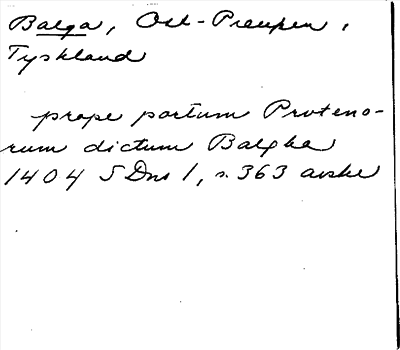 Balga, Ost-Preußen,
Tyskland
prope portum Pruteno-
rum dictum Balghe
1404 SDns 1, s. 363 avskr